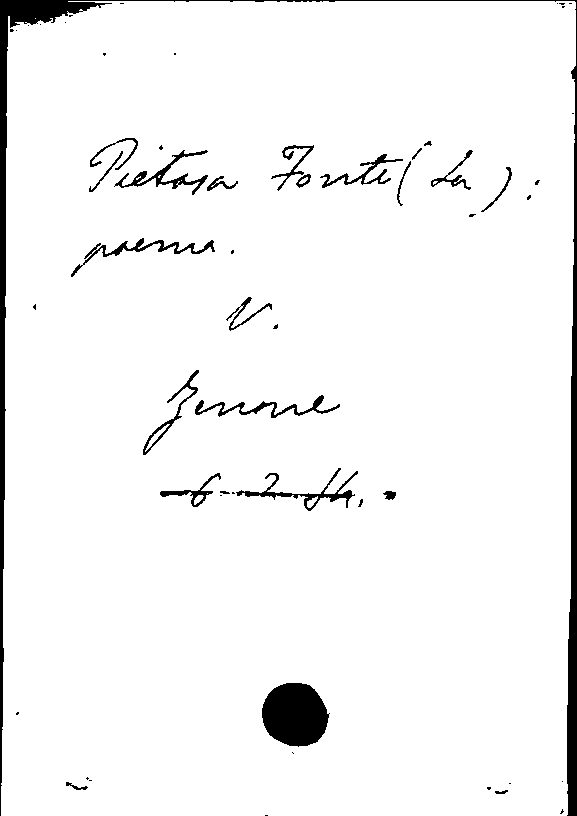 Pietosa Fonte (La):
poema.
V.
Zenone
6 2